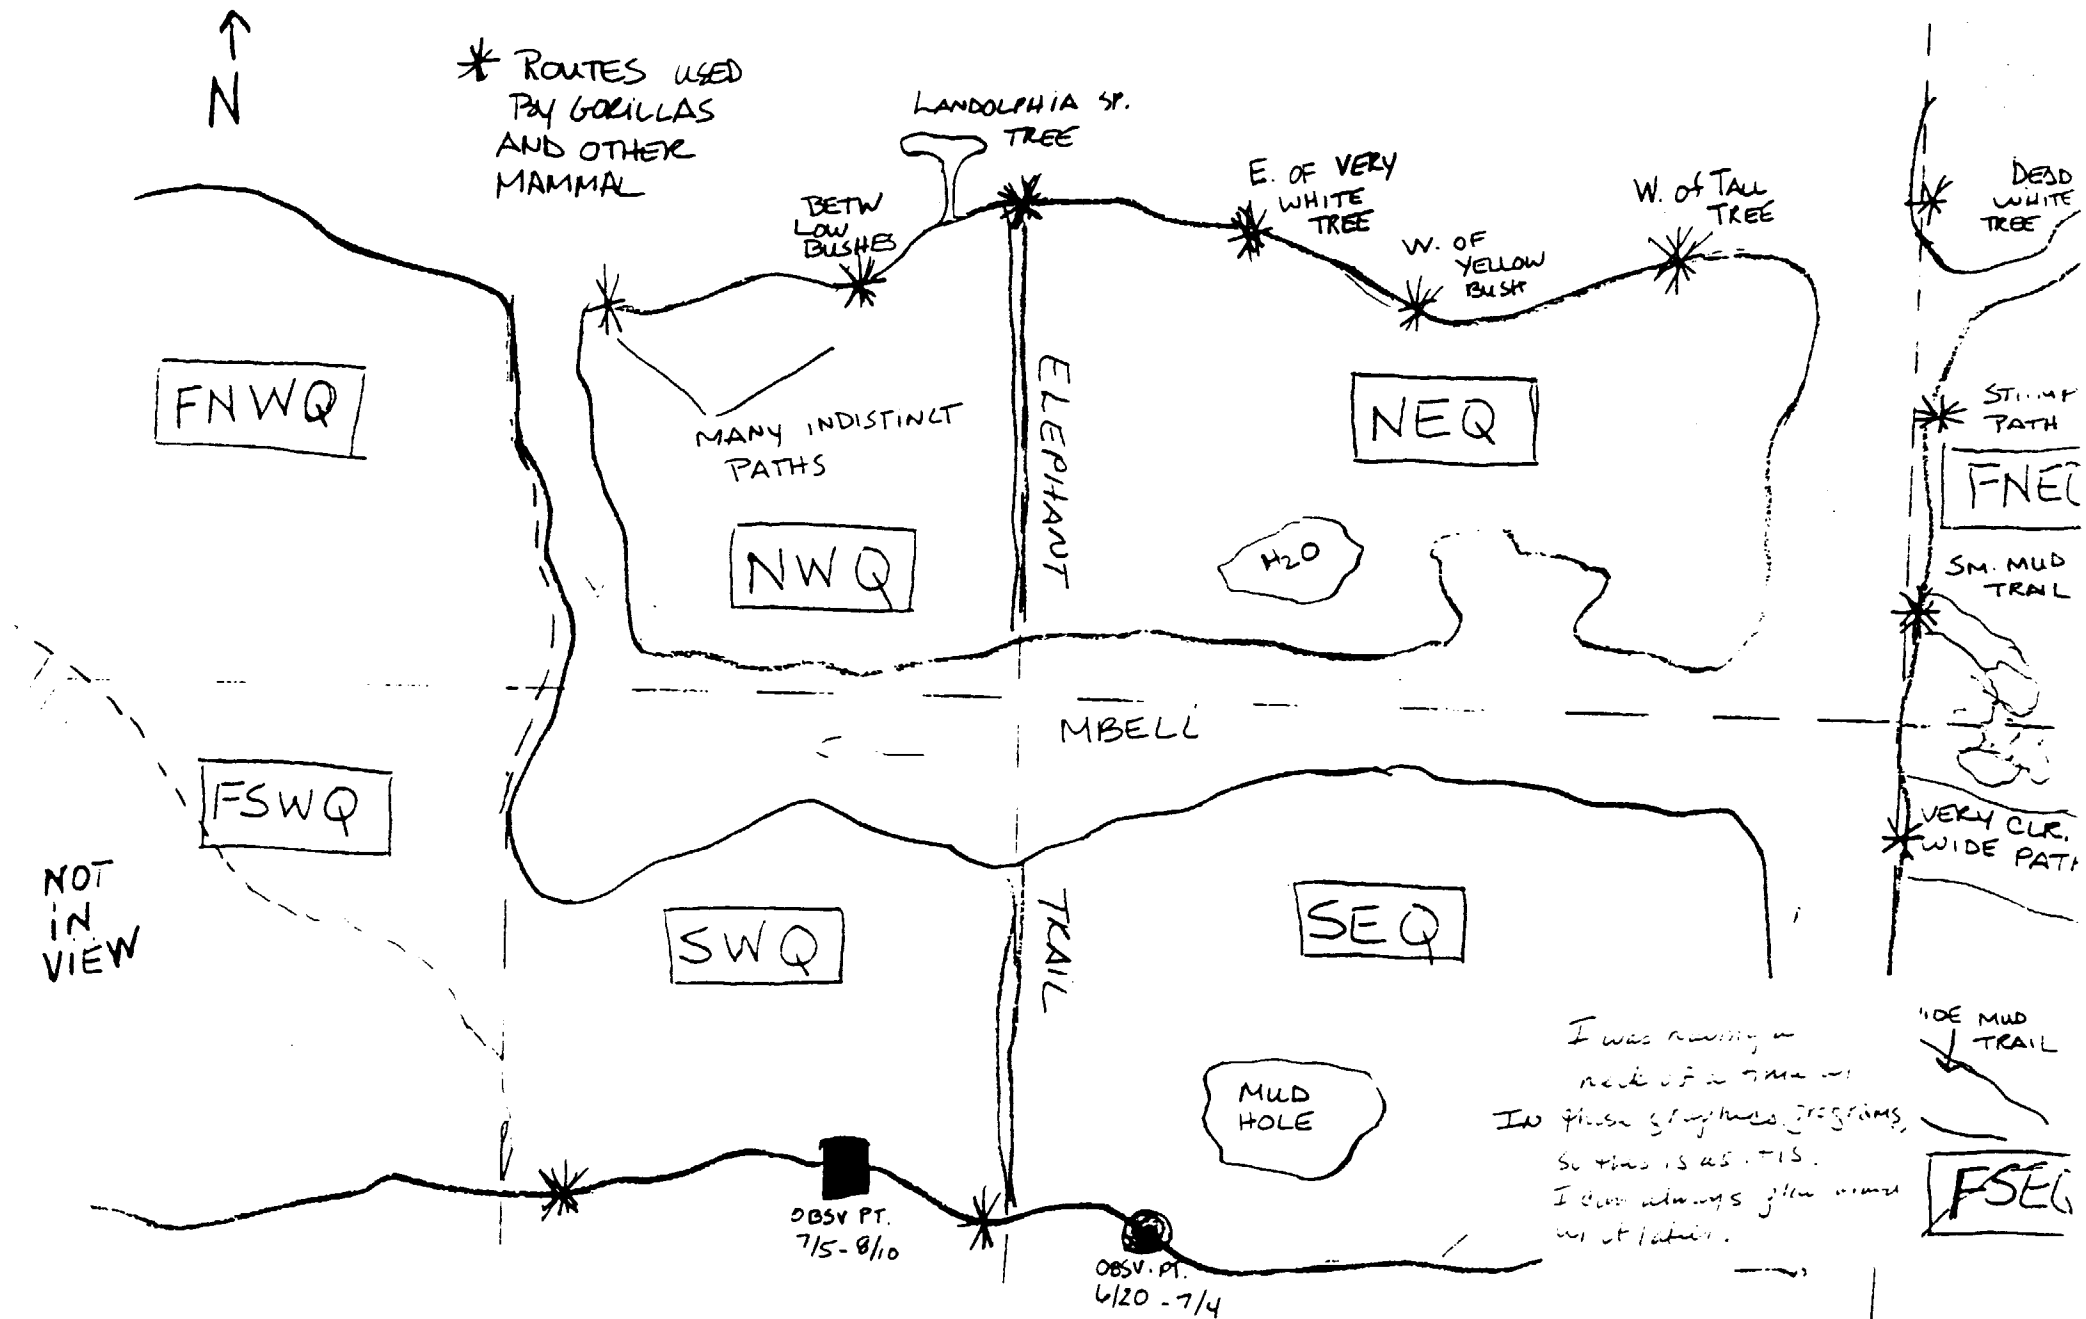 N
* ROUTES USED
BY GORILLAS
AND OTHER
MAMMAL
LANDOLPHIA SP.
TREE
BETW
LOW
BUSHES
E. OF VERY
WHITE
TREE
W. OF
YELLOW
BUSH
W. of TALL
TREE
DEAD
WHITE
TREE
FNWQ
MANY INDISTINCT
PATHS
NWQ
ELEPHANT
NEQ
H2O
PATH
SM. MUD
TRAIL
MBELL
FSWQ
VERY CLR.
WIDE PATH
NOT
IN
VIEW
SWQ
TRAIL
SEQ
MUD
TRAIL
MUD
HOLE
I was
In these graphics programs,
So this is as
I can always
OBSV PT.
7/5-8/10
OBSV. PT.
6/20 - 7/4